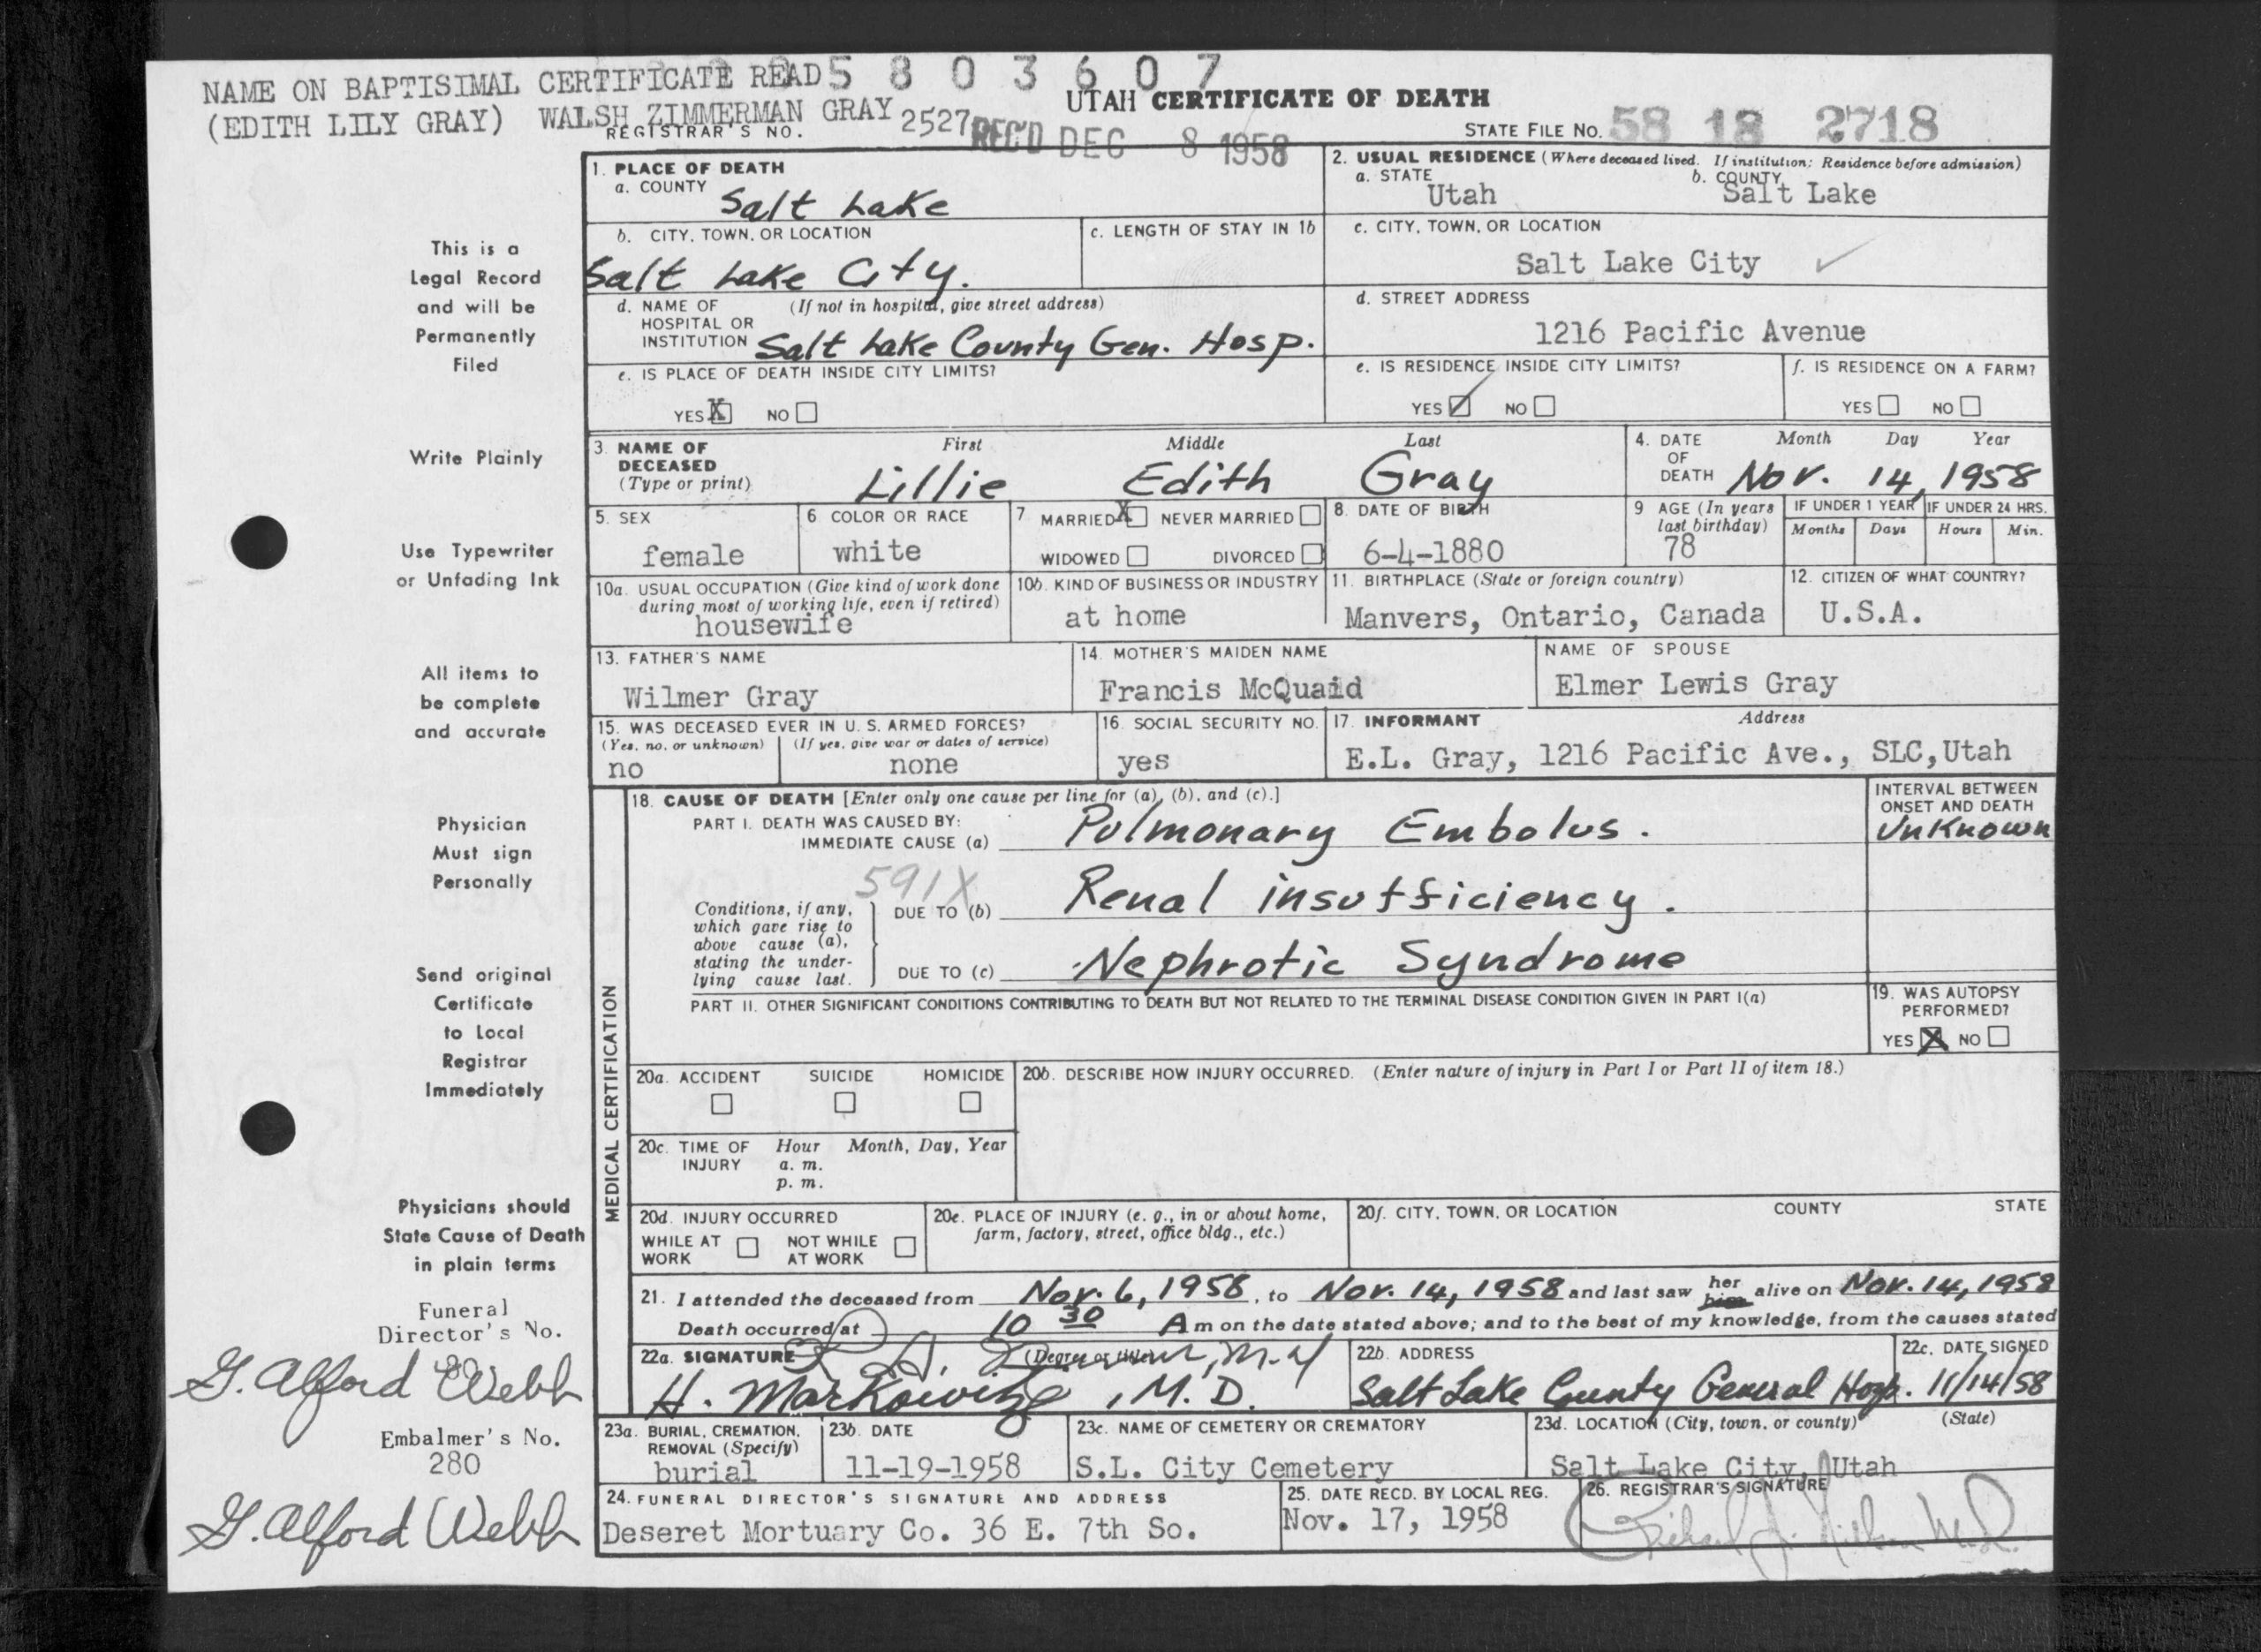 5803607
NAME ON BAPTISIMAL CERTIFICATE READ
(EDITH LILY GRAY) WALSH ZIMMERMAN GRAY
REGISTRAR'S NO. 2527
REC'D DEC 8 1958
UTAH CERTIFICATE OF DEATH
STATE FILE NO. 58 18 2718
This is a
Legal Record
and will be
Permanently
Filed
Write Plainly
Use Typewriter
or Unfading Ink
All items to
be complete
and accurate
Physician
Must sign
Personally
Send original
Certificate
to Local
Registrar
Immediately
Physicians should
State Cause of Death
in plain terms
Funeral
Director's No.
G. Alford Webb
Embalmer's No.
280
G. Alford Webb
1. PLACE OF DEATH
a. COUNTY
Salt Lake
2. USUAL RESIDENCE (Where deceased lived. If institution: Residence before admission)
a. STATE
Utah
b. COUNTY
Salt Lake
b. CITY, TOWN, OR LOCATION
Salt Lake City.
c. LENGTH OF STAY IN 1b
c. CITY, TOWN, OR LOCATION
Salt Lake City
d. NAME OF (If not in hospital, give street address)
HOSPITAL OR
INSTITUTION Salt Lake County Gen. Hosp.
d. STREET ADDRESS
1216 Pacific Avenue
e. IS PLACE OF DEATH INSIDE CITY LIMITS?
YES X NO
e. IS RESIDENCE INSIDE CITY LIMITS?
YES NO
f. IS RESIDENCE ON A FARM?
YES NO
3. NAME OF
DECEASED
(Type or print)
First Middle Last
Lillie Edith Gray
4. DATE
OF
DEATH
Month Day Year
Nov. 14, 1958
5. SEX
female
6 COLOR OR RACE
white
7 MARRIED X NEVER MARRIED
WIDOWED DIVORCED
8. DATE OF BIRTH
6-4-1880
9 AGE (In years
last birthday)
78
IF UNDER 1 YEAR
Months Days
IF UNDER 24 HRS.
Hours Min.
10a. USUAL OCCUPATION (Give kind of work done
during most of working life, even if retired)
housewife
10b. KIND OF BUSINESS OR INDUSTRY
at home
11. BIRTHPLACE (State or foreign country)
Manvers, Ontario, Canada
12. CITIZEN OF WHAT COUNTRY?
U.S.A.
13. FATHER'S NAME
Wilmer Gray
14. MOTHER'S MAIDEN NAME
Francis McQuaid
NAME OF SPOUSE
Elmer Lewis Gray
15. WAS DECEASED EVER IN U. S. ARMED FORCES?
(Yes, no, or unknown) (If yes, give war or dates of service)
no none
16. SOCIAL SECURITY NO.
yes
17. INFORMANT Address
E.L. Gray, 1216 Pacific Ave., SLC,Utah
MEDICAL CERTIFICATION
18. CAUSE OF DEATH [Enter only one cause per line for (a), (b), and (c).]
PART I. DEATH WAS CAUSED BY:
IMMEDIATE CAUSE (a) Pulmonary Embolus.
INTERVAL BETWEEN
ONSET AND DEATH
Unknown
591X
Conditions, if any,
which gave rise to
above cause (a),
stating the under-
lying cause last.
DUE TO (b) Renal insufficiency.
DUE TO (c) Nephrotic Syndrome
PART II. OTHER SIGNIFICANT CONDITIONS CONTRIBUTING TO DEATH BUT NOT RELATED TO THE TERMINAL DISEASE CONDITION GIVEN IN PART I(a)
19. WAS AUTOPSY
PERFORMED?
YES X NO
20a. ACCIDENT SUICIDE HOMICIDE
20b. DESCRIBE HOW INJURY OCCURRED. (Enter nature of injury in Part I or Part II of item 18.)
20c. TIME OF Hour Month, Day, Year
INJURY a. m.
p. m.
20d. INJURY OCCURRED
WHILE AT NOT WHILE
WORK AT WORK
20e. PLACE OF INJURY (e. g., in or about home,
farm, factory, street, office bldg., etc.)
20f. CITY, TOWN, OR LOCATION COUNTY STATE
21. I attended the deceased from Nov. 6, 1958, to Nov. 14, 1958 and last saw her him alive on Nov. 14, 1958
Death occurred at 10 30 A m on the date stated above; and to the best of my knowledge, from the causes stated
22a. SIGNATURE (Degree or title) M.D
H. Markowitz, M.D.
22b. ADDRESS
Salt Lake County General Hosp.
22c. DATE SIGNED
11/14/58
23a. BURIAL, CREMATION,
REMOVAL (Specify)
burial
23b. DATE
11-19-1958
23c. NAME OF CEMETERY OR CREMATORY
S.L. City Cemetery
23d. LOCATION (City, town, or county) (State)
Salt Lake City, Utah
24. FUNERAL DIRECTOR'S SIGNATURE AND ADDRESS
Deseret Mortuary Co. 36 E. 7th So.
25. DATE RECD. BY LOCAL REG.
Nov. 17, 1958
26. REGISTRAR'S SIGNATURE